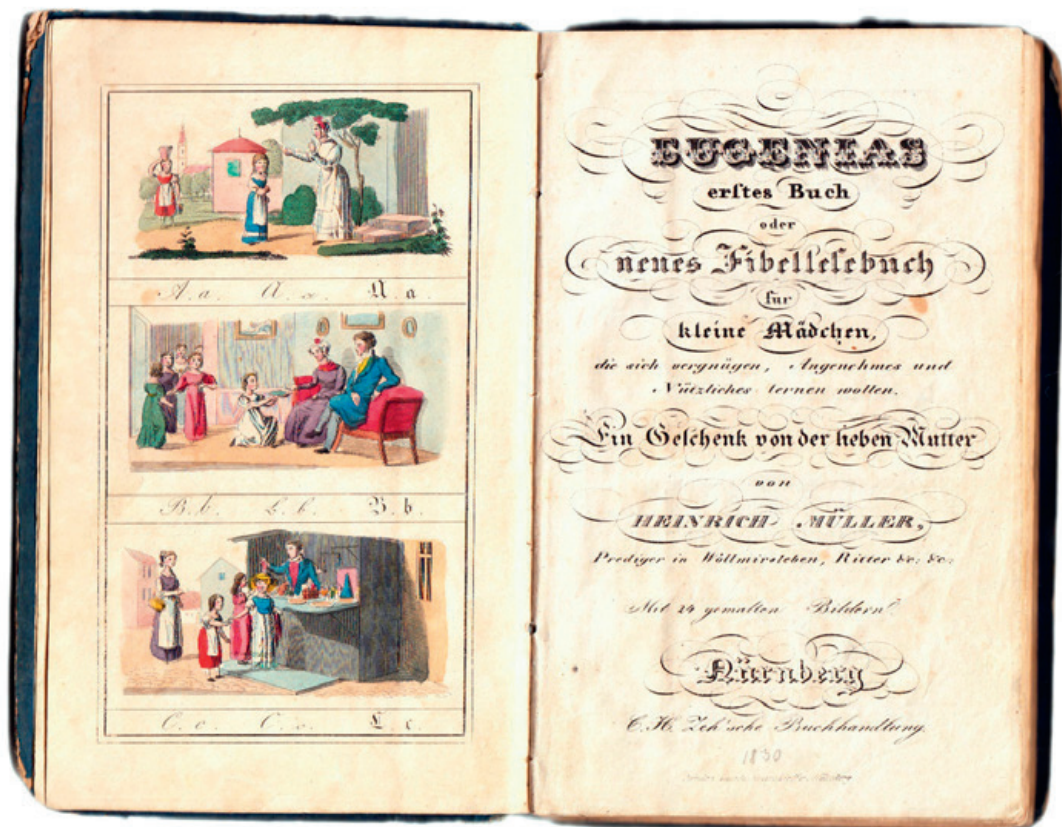 A. a. A. a. A. a.
B. b. B. b. B. b.
C. c. C. c. C. c.
EUGENIAS
erſtes Buch
oder
neues Fibelleſebuch
für
kleine Mädchen,
die sich vergnügen, Angenehmes und
Nützliches lernen wollen.
Ein Geſchenk von der lieben Mutter
von
HEINRICH MÜLLER,
Prediger in Wollmirsleben, Ritter &c: &c:
Mit 24 gemalten Bildern.
Nürnberg
C. H. Zeh'sche Buchhandlung.
1830